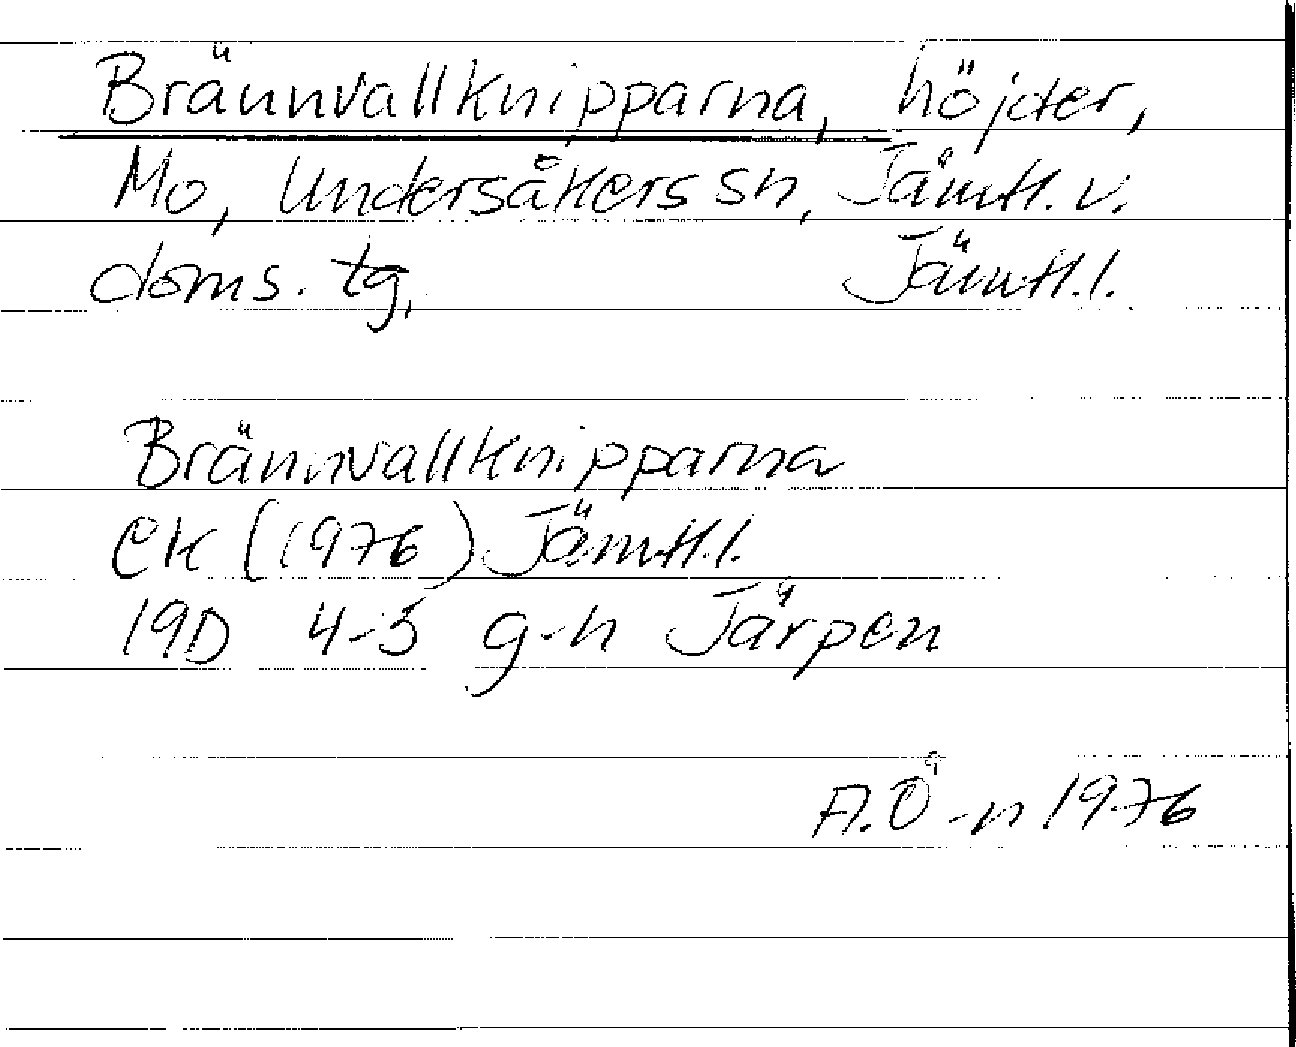 Brännvallknipparna, höjder,
Mo, Undersåkers sn, Jämtl. v.
doms. tg, Jämtl. l.
Brännvallknipparna
EK (1976) Jämtl. l.
19D 4-5 g-h Järpen
A. Ö-n 1976